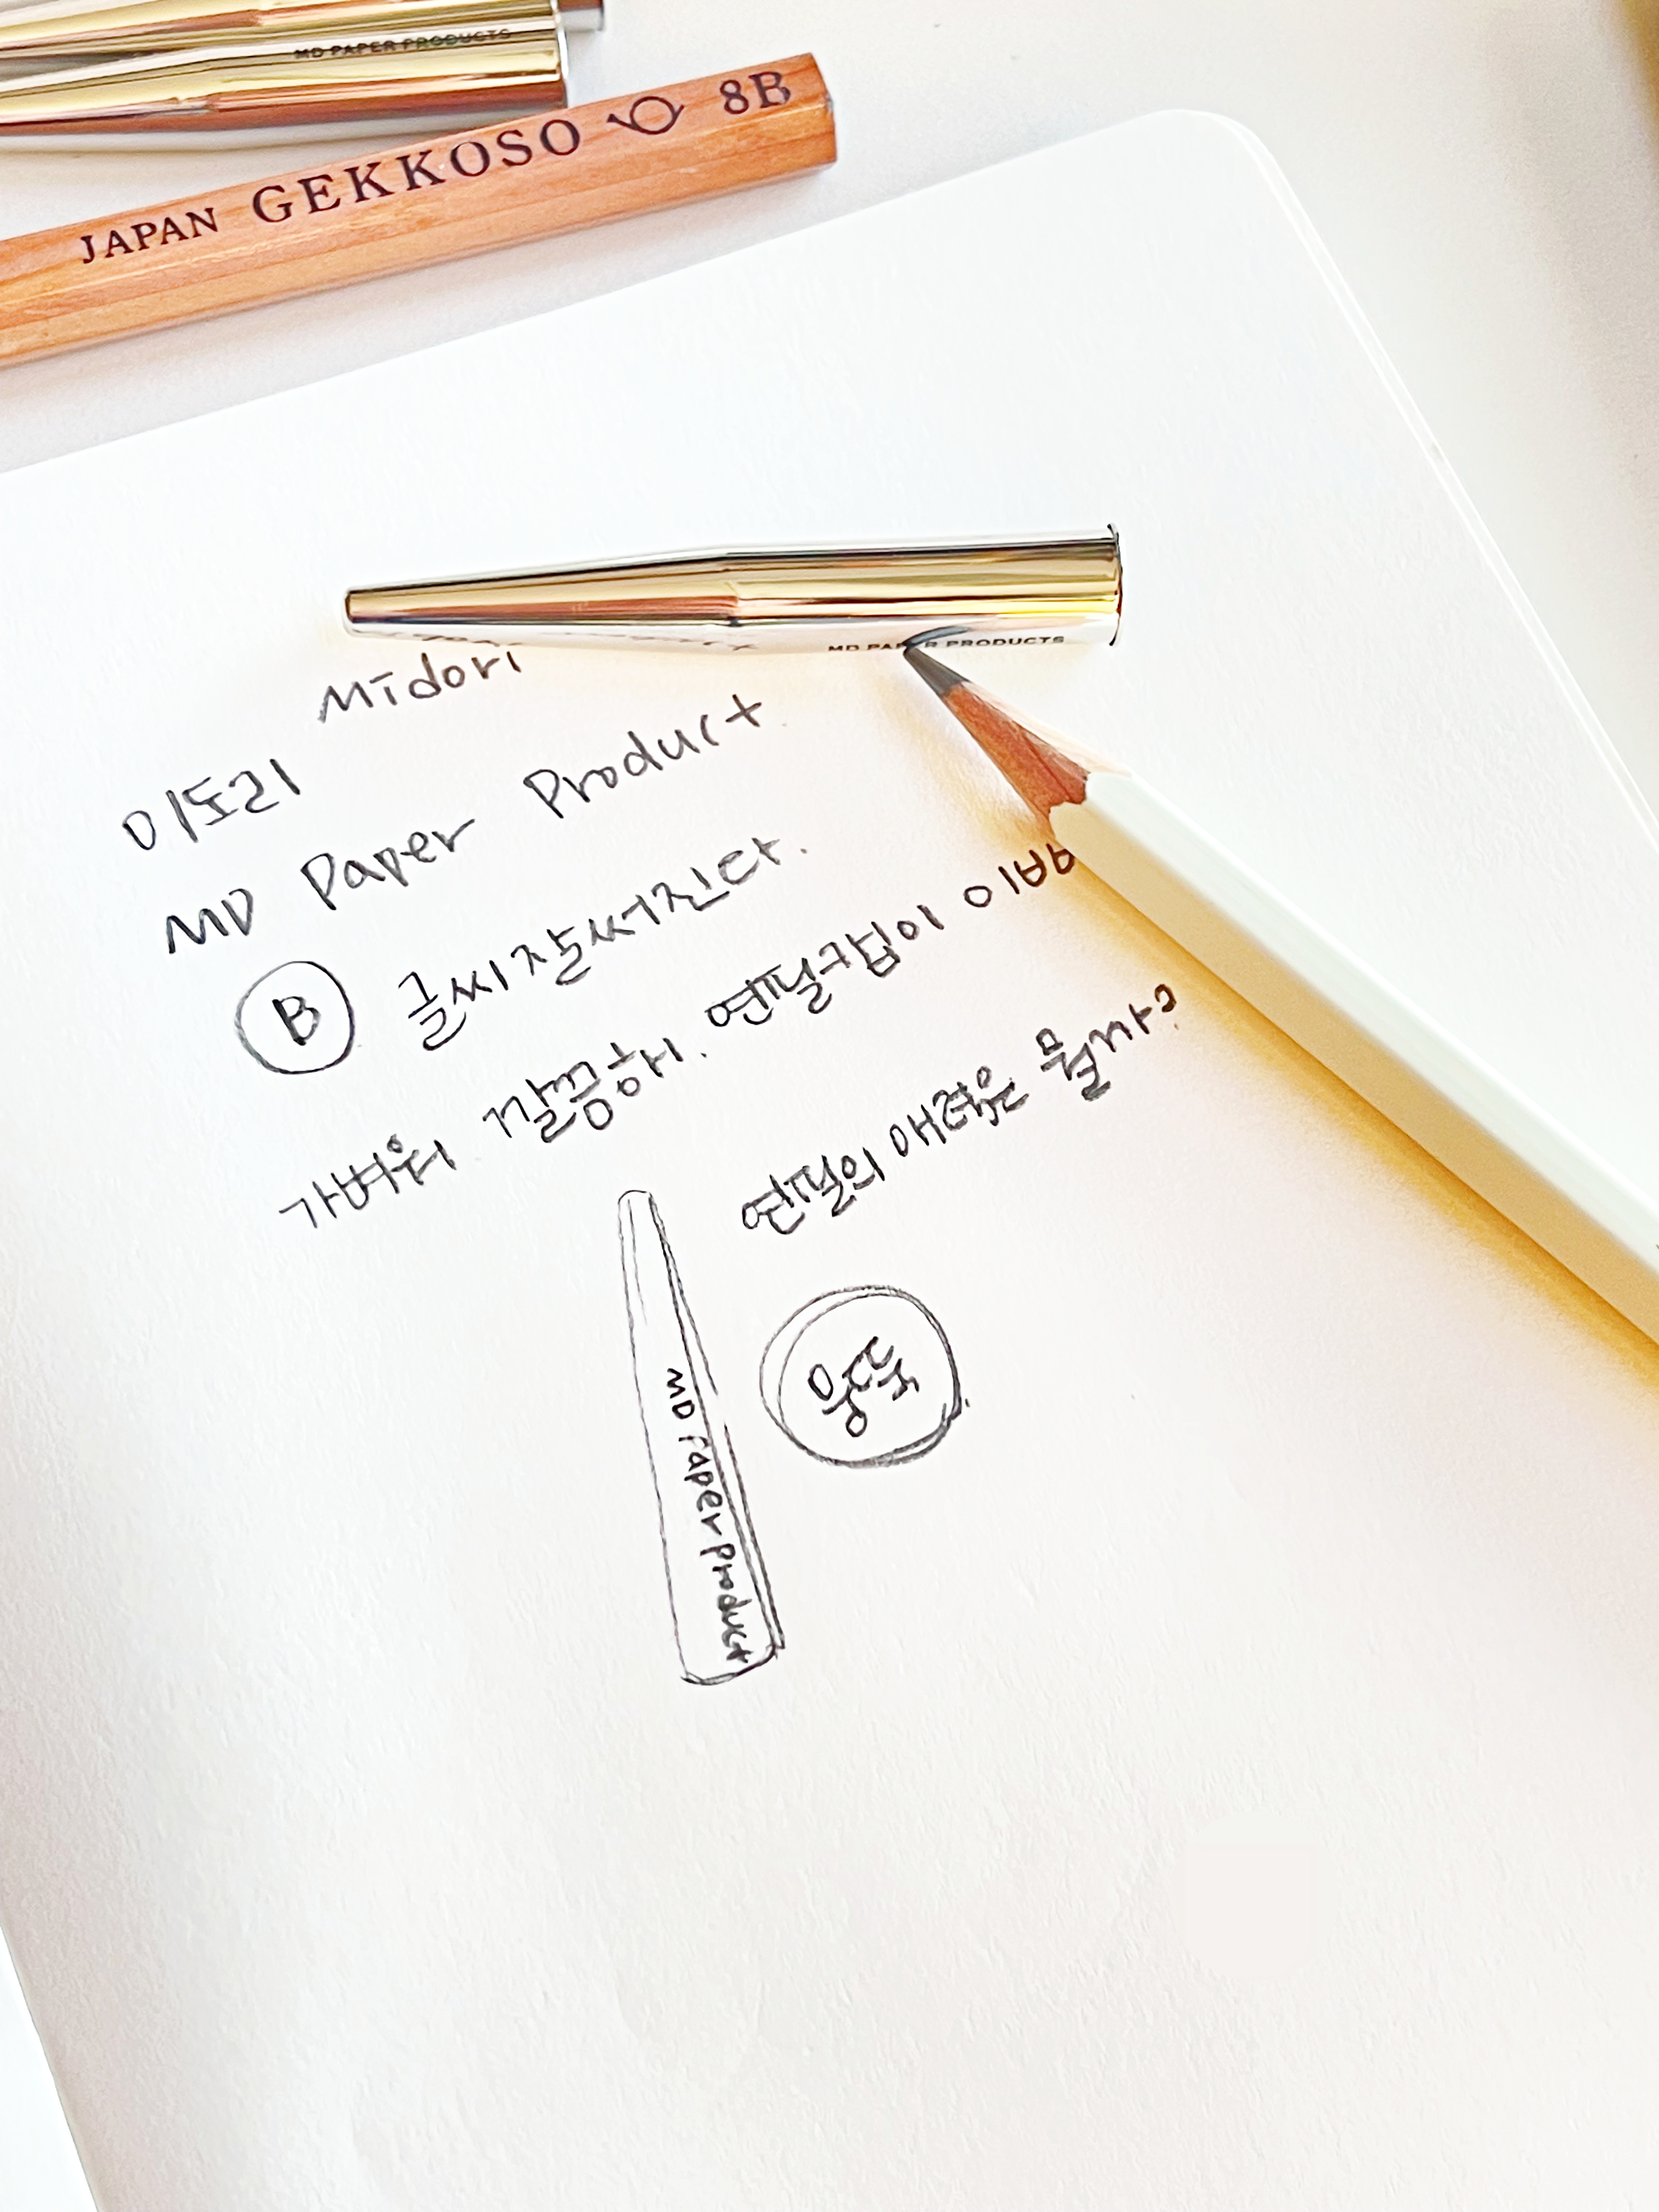 MD PAPER PRODUCTS
JAPAN GEKKOSO 8B
MD PAPER PRODUCTS
Midori
미도리
MD Paper Product
B 글씨 잘써진다.
가벼워 깔끔해. 연필캡이 이뻐
연필의 매력은 뭘까?
MD Paper Product
뭉뚝